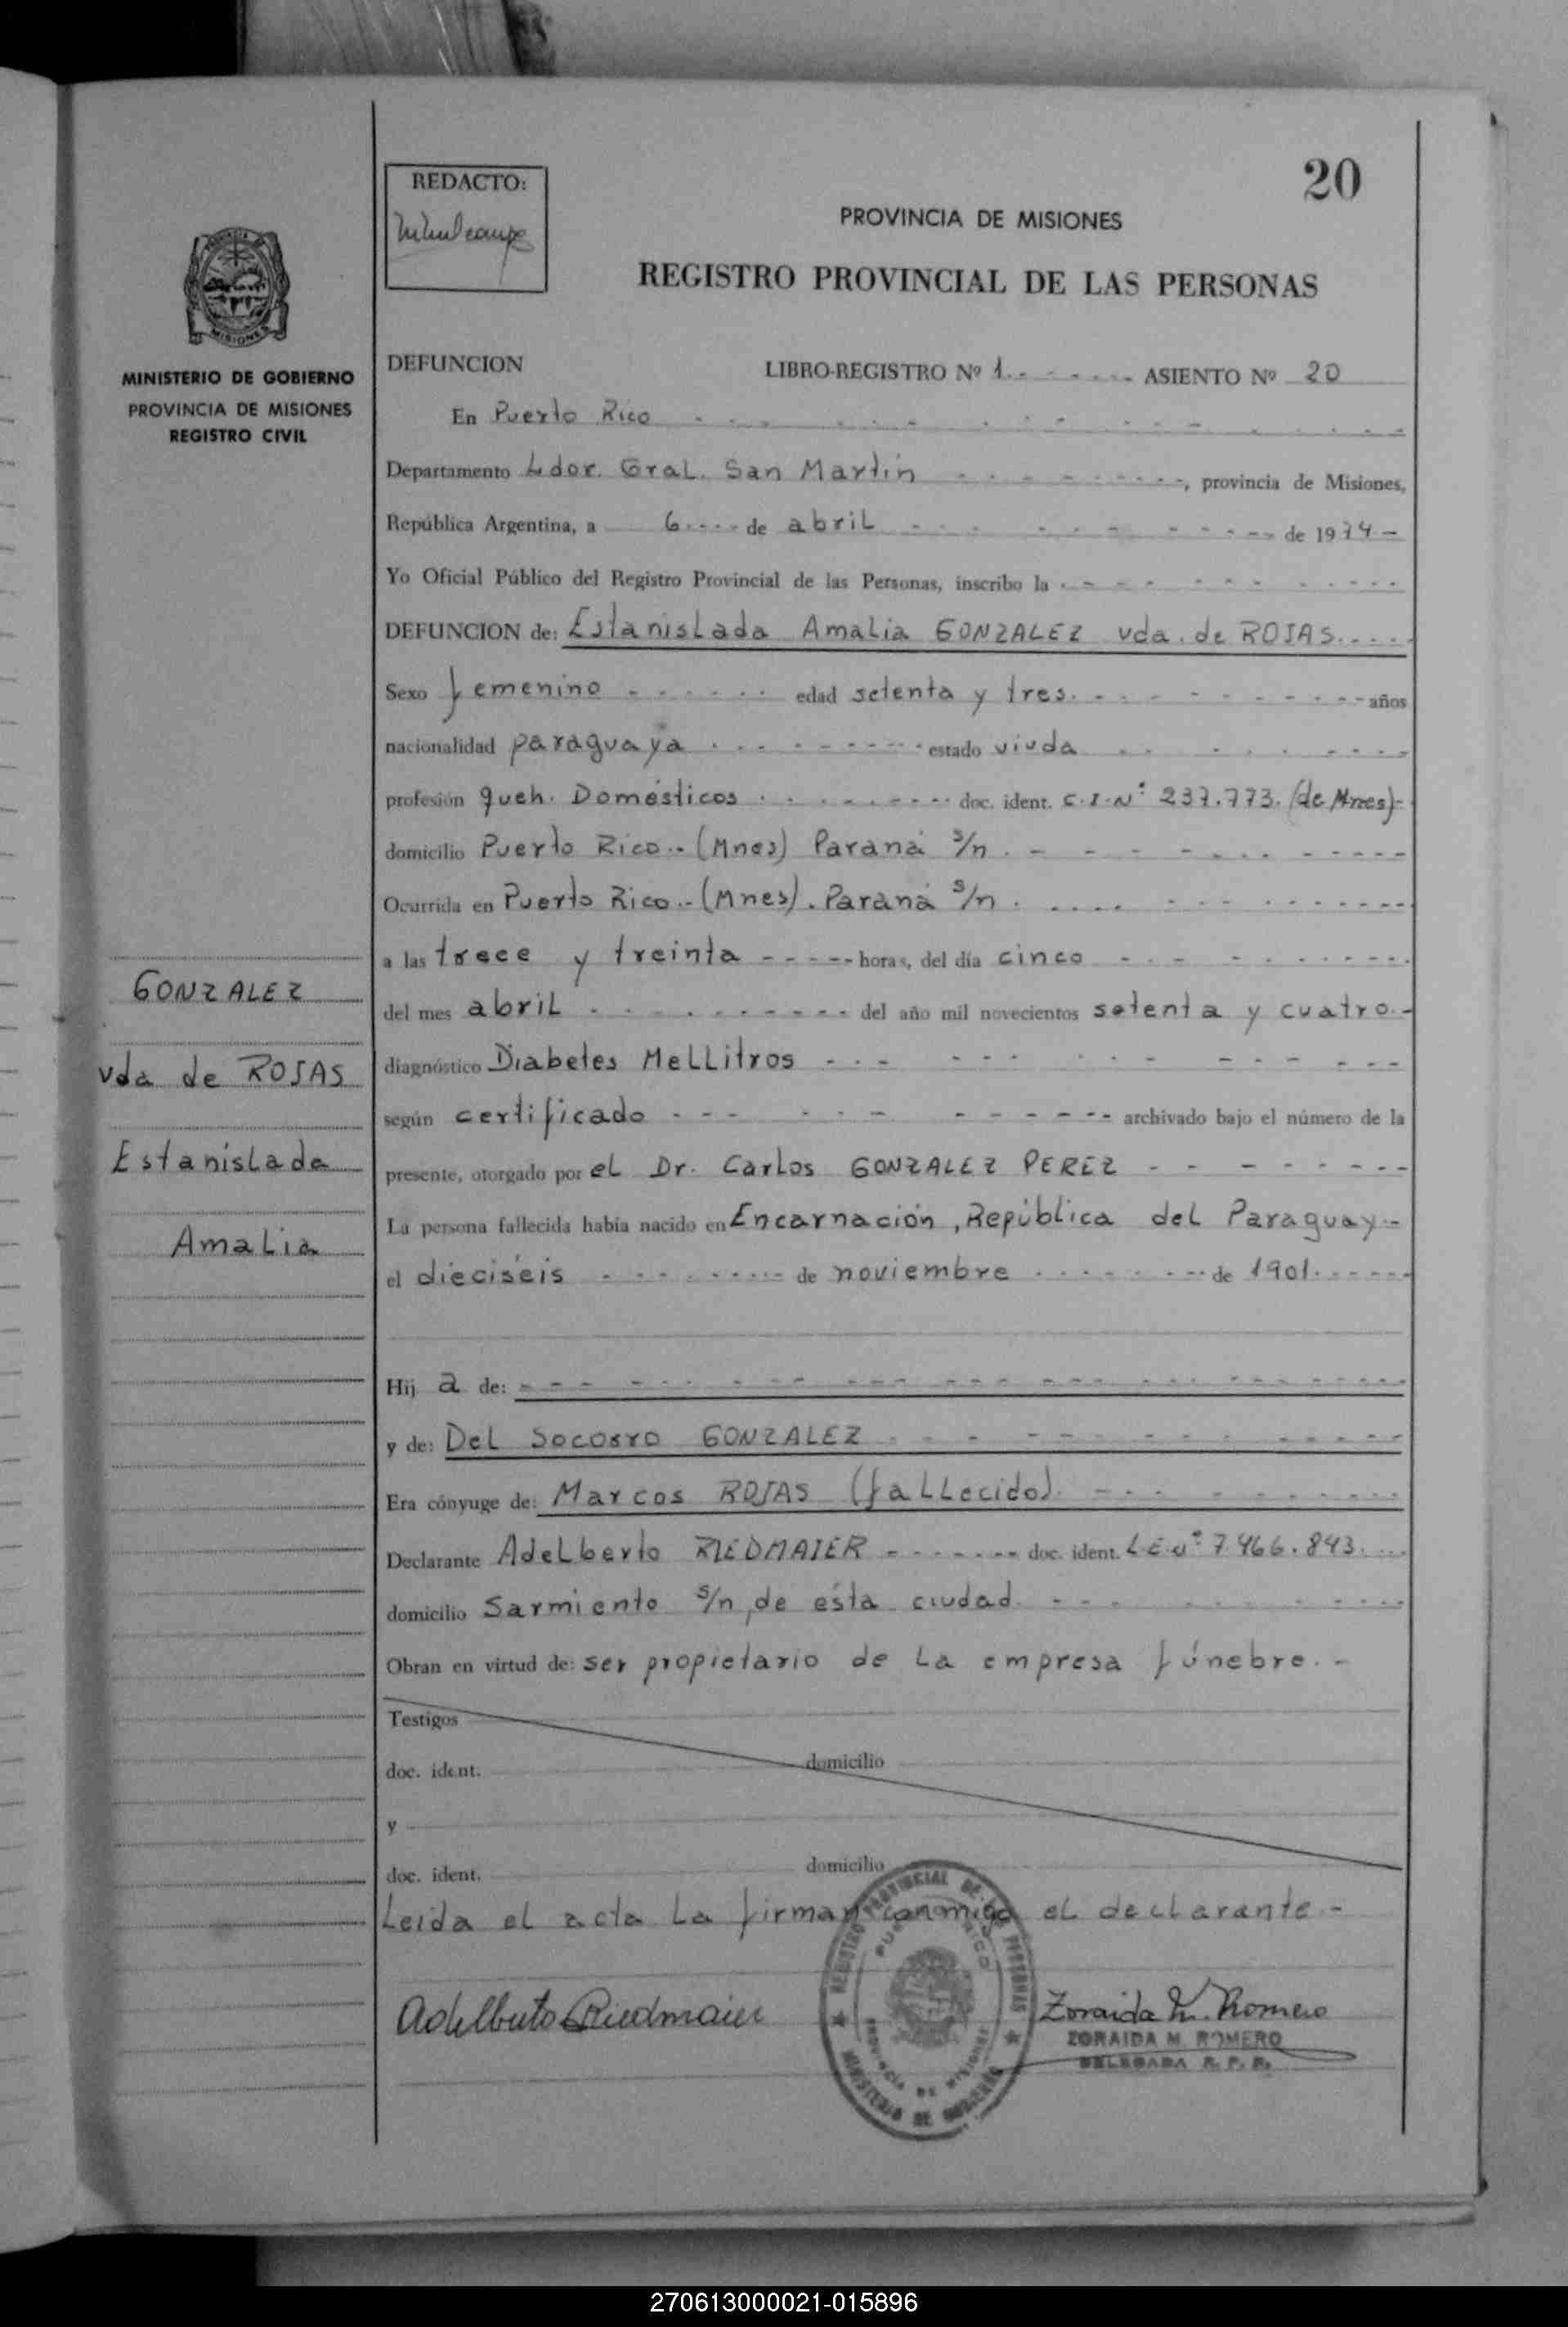 20
REDACTO:
PROVINCIA DE MISIONES
REGISTRO PROVINCIAL DE LAS PERSONAS
MISIONES
MINISTERIO DE GOBIERNO
PROVINCIA DE MISIONES
REGISTRO CIVIL
DEFUNCION LIBRO-REGISTRO Nº 1 ASIENTO Nº 20
En Puerto Rico
Departamento Ldor. Gral. San Martín, provincia de Misiones,
República Argentina, a 6 de abril de 1974
Yo Oficial Público del Registro Provincial de las Personas, inscribo la
DEFUNCION de: Estanislada Amalia GONZALEZ vda. de ROJAS
Sexo femenino edad setenta y tres años
nacionalidad paraguaya estado viuda
profesión queh. Domésticos doc. ident. C.I.Nº 237.773. (de Mnes)
domicilio Puerto Rico.- (Mnes) Paraná s/n
Ocurrida en Puerto Rico.- (Mnes). Paraná s/n
a las trece y treinta horas, del día cinco
del mes abril del año mil novecientos setenta y cuatro
diagnóstico Diabetes Mellitros
según certificado archivado bajo el número de la
presente, otorgado por el Dr. Carlos GONZALEZ PEREZ
La persona fallecida había nacido en Encarnación, República del Paraguay
el dieciséis de noviembre de 1901
GONZALEZ
vda de ROJAS
Estanislada
Amalia
Hij a de:
y de: Del Socorro GONZALEZ
Era cónyuge de: Marcos ROJAS (fallecido)
Declarante Adelberto RIEDMAIER doc. ident. L E nº 7.466.843
domicilio Sarmiento s/n, de ésta ciudad
Obran en virtud de: ser propietario de la empresa fúnebre.-
Testigos
doc. ident. domicilio
y
doc. ident. domicilio
Leida el acta la firman conmigo el declarante-
Adelberto Riedmaier
REGISTRO PROVINCIAL DE LAS PERSONAS
PUERTO RICO
PROVINCIA DE MISIONES
MINISTERIO DE GOBIERNO
Zoraida M. Romero
ZORAIDA M. ROMERO
DELEGADA R. P. P.
270613000021-015896